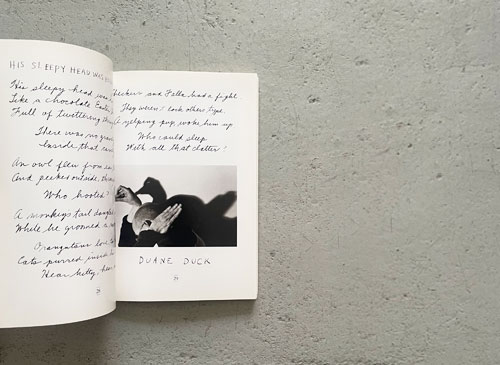 HIS SLEEPY HEAD WAS
His sleepy head was
Like a chocolate
Full of
There was no
Inside that
An owl flew from
And peeked outside,
Who hooted?
A monkey's tail
While he groomed a
Orangutans love
Cats purred inside
Hear kitty, hear
and Fella had a fight.
They weren't each others type.
A yelping pup woke him up
Who could sleep
With all that clatter?
DUANE DUCK